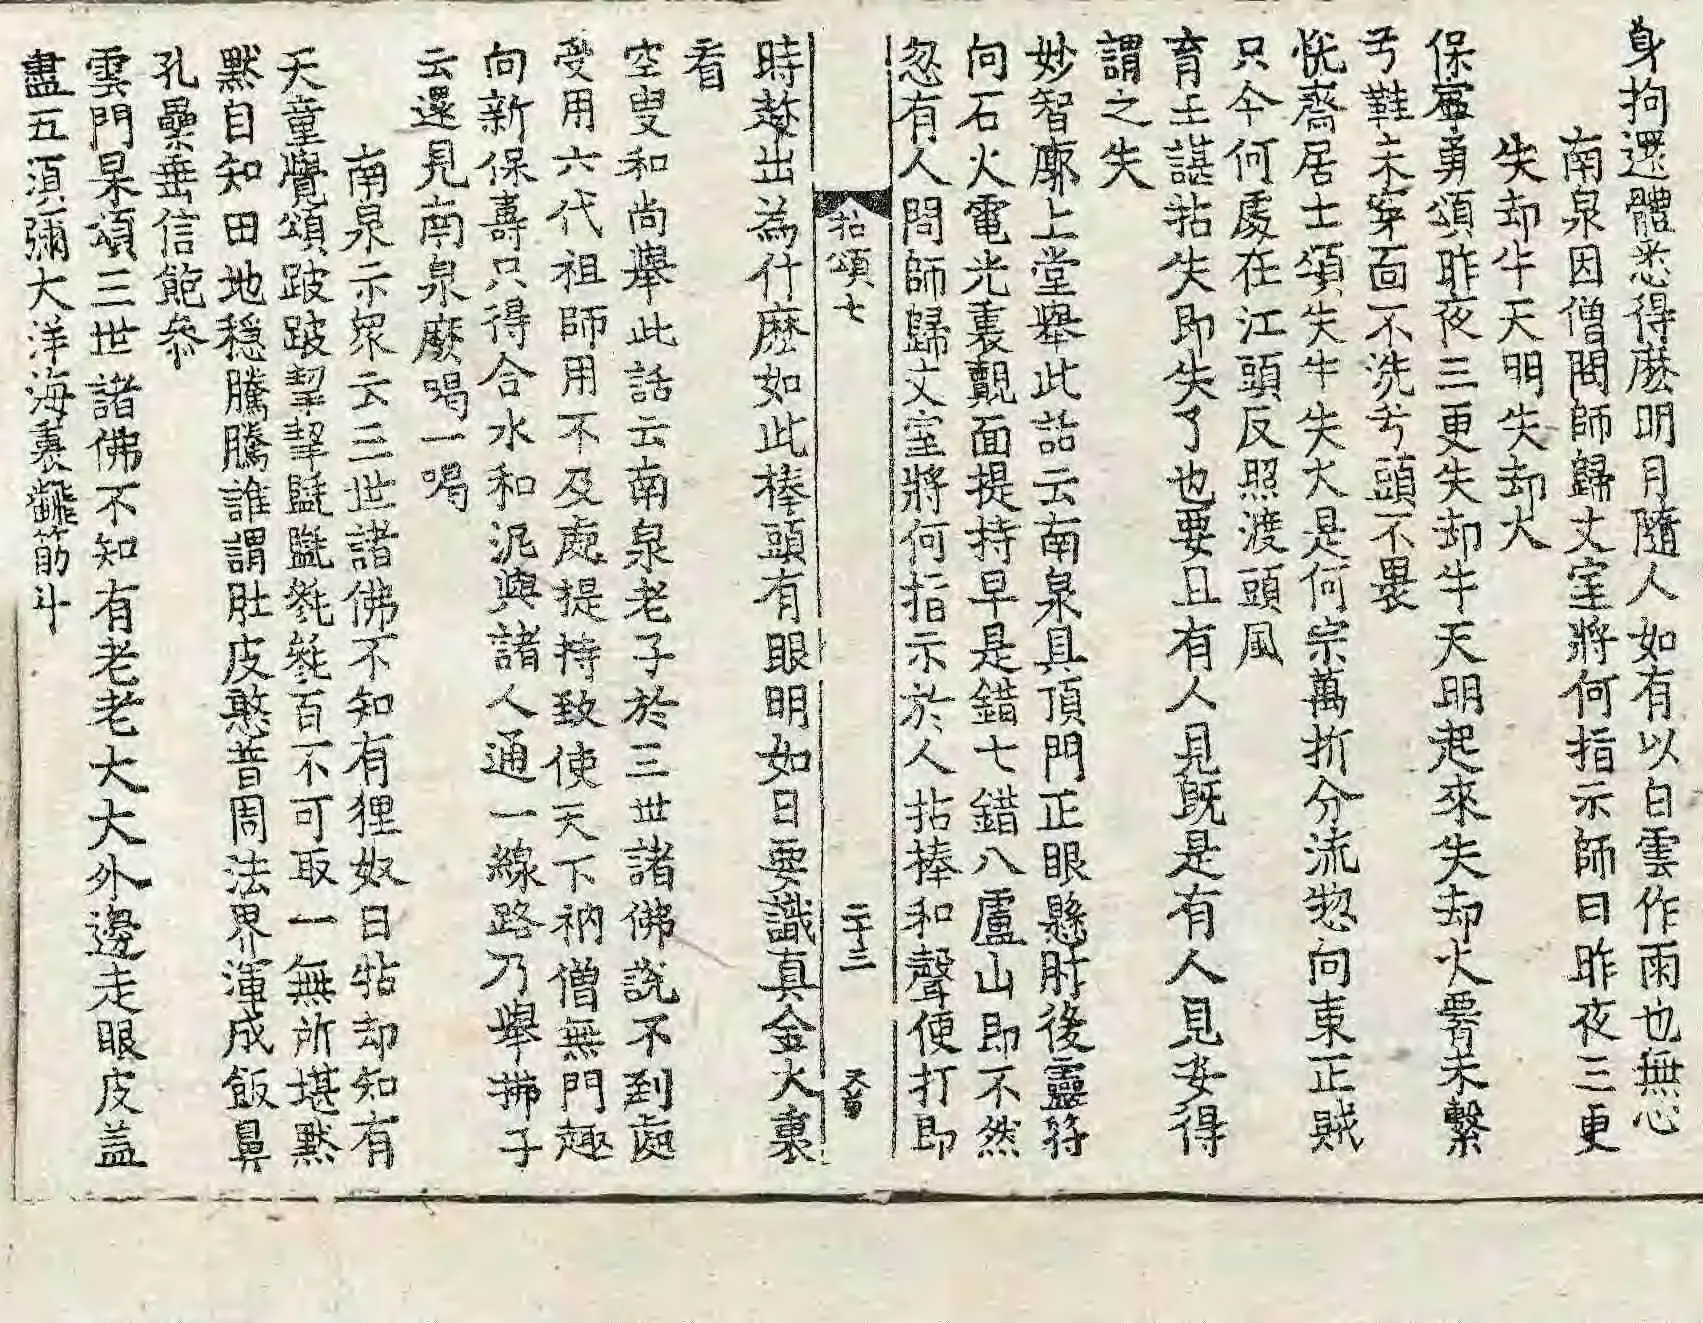 身拘還體悉得麽明月隨人如有以白雲作雨也無心
南泉因僧問師歸丈室將何指示師曰昨夜三更
失却牛天明失却火
保寧勇頌昨夜三更失却牛天明起來失却火褌未繫
兮鞋未穿面不洗兮頭不畏
恱齋居士頌失牛失火是何宗萬折分流惣向東正賊
只今何處在江頭反照渡頭風
育王諶拈失即失了也要且有人見旣是有人見安得
謂之失
妙智廓上堂舉此話云南泉具頂門正眼懸肘後靈符
向石火電光裏覿面提持早是錯七錯八盧山即不然
忽有人問師歸丈室將何指示於人拈捧和聲便打即
拈頌七
二十三
時趂出為什麽如此棒頭有眼明如日要識真金火裏
看
空叟和尚舉此話云南泉老子於三世諸佛說不到處
受用六代祖師用不及處提持致使天下衲僧無門趣
向新保壽只得合水和泥與諸人通一線路乃舉拂子
云還見南泉麽喝一喝
南泉示衆云三世諸佛不知有狸奴白牯却知有
天童覺頌跛跛挈挈毿毿百不可取一無所堪默
默自知田地穩騰騰誰謂肚皮憨普周法界渾成飯鼻
孔纍垂信飽叅
雲門杲頌三世諸佛不知有老老大大外邊走眼皮盖
盡五湏彌大洋海裏飜筋斗